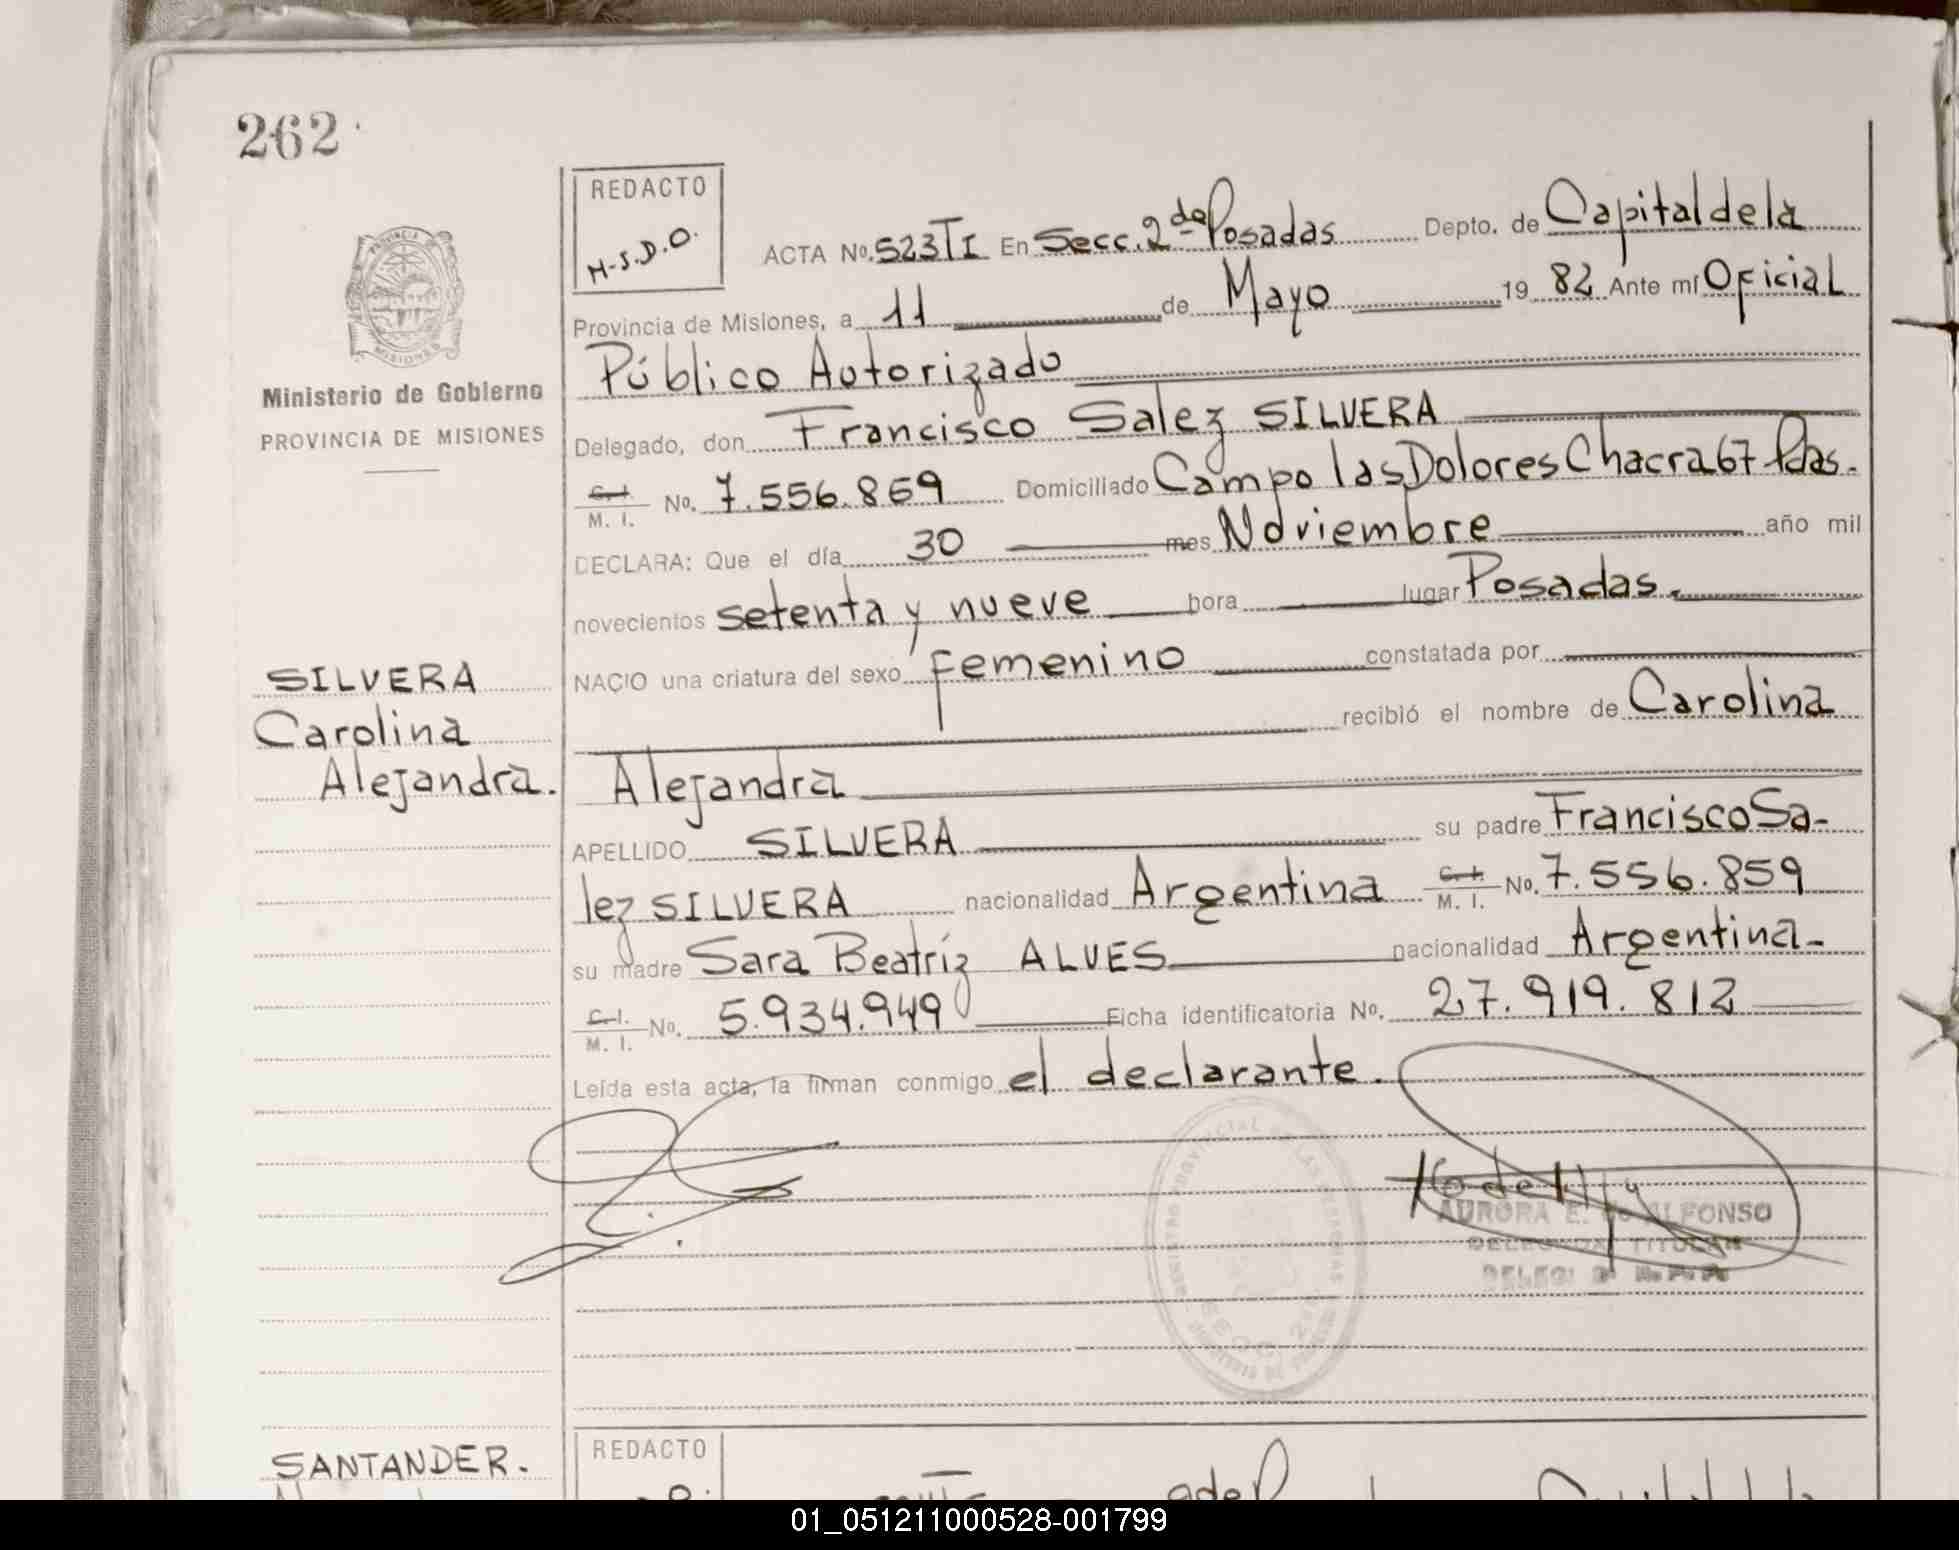 262
REDACTO
H-S.D.O.
PROVINCIA DE
MISIONES
Ministerio de Gobierno
PROVINCIA DE MISIONES
ACTA No. 523 TI En Secc. 2da Posadas Depto. de Capital de la
Provincia de Misiones, a 11 de Mayo 19 82 Ante mí Oficial
Público Autorizado
Delegado, don Francisco Salez SILVERA
C.I. M. I. No. 7.556.859 Domiciliado Campo las Dolores Chacra 67 Pdas.
DECLARA: Que el día 30 mes Noviembre año mil
novecientos setenta y nueve hora lugar Posadas.
NACIO una criatura del sexo femenino constatada por
recibió el nombre de Carolina
Alejandra
SILVERA
Carolina
Alejandra.
APELLIDO SILVERA su padre Francisco Sa-
lez SILVERA nacionalidad Argentina C.I. M. I. No. 7.556.859
su madre Sara Beatríz ALVES nacionalidad Argentina-
C.I. M. I. No. 5.934.949 Ficha identificatoria No. 27.919.812
Leída esta acta, la firman conmigo el declarante.
AURORA E. de ALFONSO
DELEGADA TITULAR
SANTANDER.
REDACTO
01_051211000528-001799